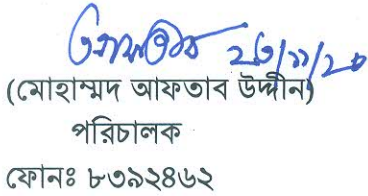 ২৩/১১/২০
(মোহাম্মদ আফতাব উদ্দীন)
পরিচালক
ফোনঃ ৮৩৯২৪৬২